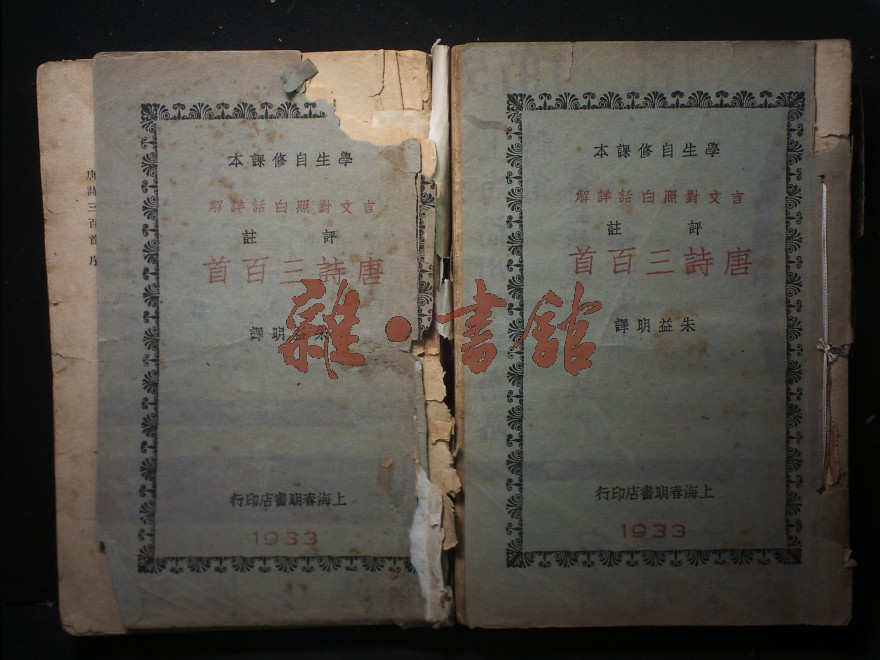 唐詩三百首 序
學生自修課本
言文對照白話詳解
評註
唐詩三百首
朱益明譯
上海春明書店印行
1933
學生自修課本
言文對照白話詳解
評註
唐詩三百首
朱益明譯
上海春明書店印行
1933
雜·書館